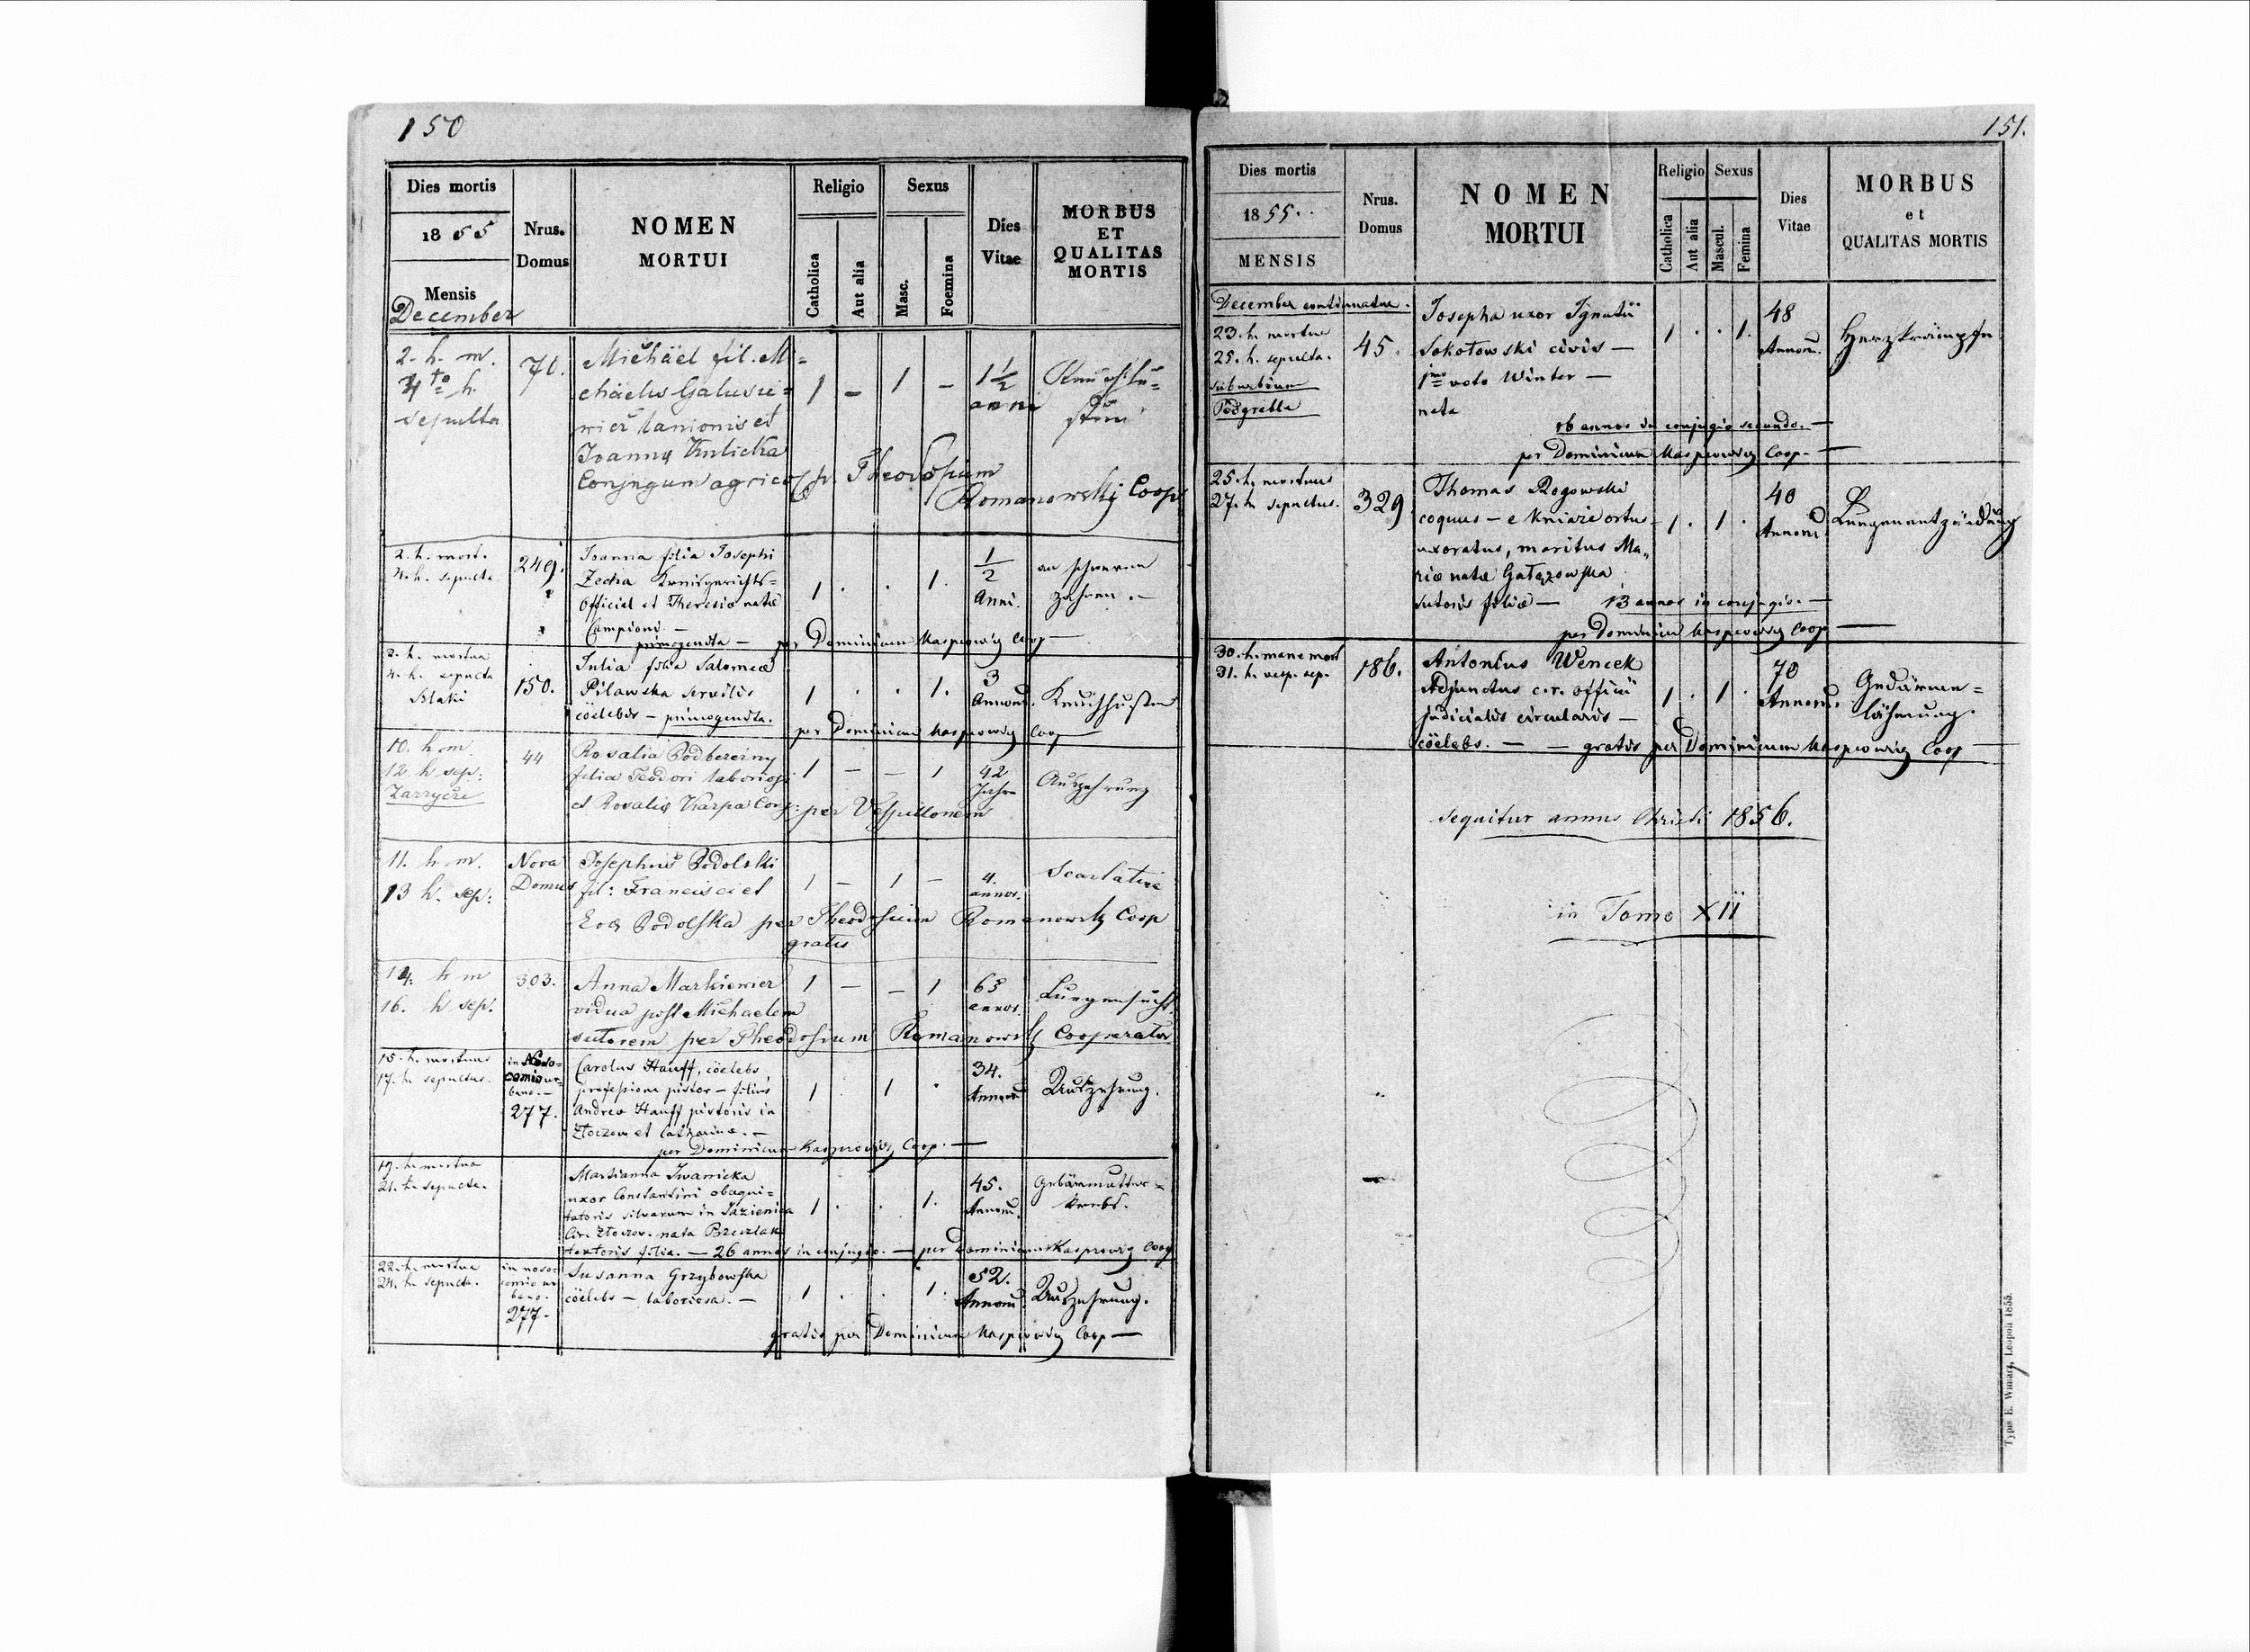 150
Dies mortis
1855
Mensis
December
Nrus.
Domus
NOMEN
MORTUI
Religio
Catholica
Aut alia
Sexus
Masc.
Foemina
Dies
Vitae
MORBUS
ET
QUALITAS
MORTIS
2. h. m.
4to h.
sepulta
70.
Michäel fil. Mi=
chäelis
lanionis et
Joanna Kulicka
Conjugum agricol
1 – 1 –
1 1/2
anni
pr. Theodosium
Romanowski Coop
2. h. mort.
4. h. sepulta
249.
Joanna filia Josephi
Zecha Kreisgerichts=
Official et Theresiæ natæ
Campioni –
primogenita – per Dominicum Kasprowicz Coop –
1 . . 1.
1/2
Anni.
an schweren
Zahnen. –
2. h. mortua
4. h. sepulta
150.
Julia filia Salomeæ
Pilawska servilis
cöelebis – primogenita.
1 . . 1.
3
Annorum.
Keuchhusten
per Dominicum Kasprowicz Coop
10. h. m.
12. h sep:
44
Rosalia Podberezny
filia Teodori laboriosi
et Rosaliæ Karpa Conj: per Vespillonem
1 – – 1
42
Jahre
Auszehrung
11. h. m.
13 h. sep:
Nova
Domus
Josephus Podolski
fil: Francisci et
Evæ Podolska per Theodosium Romanowsky Coop
gratis
1 – 1 –
4.
annor.
Scarlatina
14. h m
16. h sep.
303.
Anna Markiewicz
vidua post Michaelem
sutorem per Theodosium Romanowsky Cooperator
1 – – 1
65
annor.
Lungensucht.
15. h. mortuus
17. h. sepultus.
in Noso=
comio ur=
bano. –
277.
Carolus Hauff, cöelebs,
professione pistor – filius
Andreæ Hauff pistoris in
Złoczow et Catharinæ. –
per Dominicum Kasprowicz Coop. –
1 . 1 .
34.
Annorum
Auszehrung.
19. h. mortua
21. h. sepulta.
Marianna Iwanicka
uxor Constantini obequi=
tatoris silvarum in
Cir. Złoczov. nata
textoris filia. – 26 annos in conjugio. – per Dominicum Kasprowicz Coop
1 . . 1.
45.
Annorum.
Gebärmutter=
krebs.
22. h. mortua
24. h. sepulta.
in noso=
comio ur=
bano.
277.
Susanna Grzybowska
cöelebs – laboriosa. –
1 . . 1.
52.
Annorum
Auszehrung.
gratis per Dominicum Kasprowicz Coop –
151.
Dies mortis
1855.
MENSIS
Nrus.
Domus
NOMEN
MORTUI
Religio
Catholica
Aut alia
Sexus
Mascul.
Femina
Dies
Vitae
MORBUS
et
QUALITAS MORTIS
December continuatur.
23. h. mortua
25. h. sepulta.
suburbium
Podgrobla
45.
Josepha uxor Ignatii
Sokołowski civis –
1mo voto Winter –
nata
16 annos in conjugio secundo. –
per Dominicum Kasprowicz Coop. –
1 . . 1.
48
Annorum.
Herzkrämpfe
25. h. mortuus
27. h. sepultus.
329
Thomas Rogowski
coquus – e Kniaże ortus
uxoratus, maritus Ma„
riæ natæ
sutoris filiæ – 13 annos in conjugio. –
per Dominicum Kasprowicz Coop –
1 . 1 .
40
Annorum
Lungenentzündung
30. h. mane mort
31. h. vesp. sep.
186.
Antonius Wencek
Adjunctus c. r. officii
judicialis circularis –
cöelebs. – – gratis per Dominicum Kasprowicz Coop –
1 . 1 .
70
Annorum.
Gedärmen=
lähmung.
sequitur annus Christi 1856.
in Tomo XII
Typis E. Winiarz, Leopoli 1855.